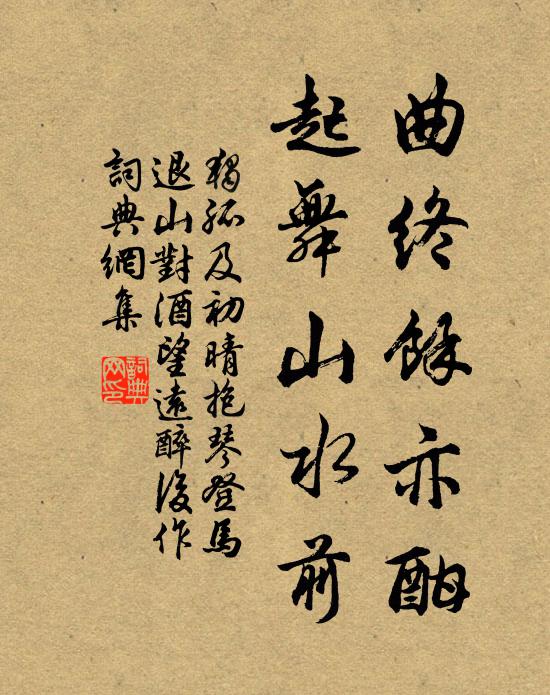 曲終餘亦酣
起舞山水前
獨孤及初晴抱琴登馬
退山對酒望遠醉後作
詞典網集
詞典网印